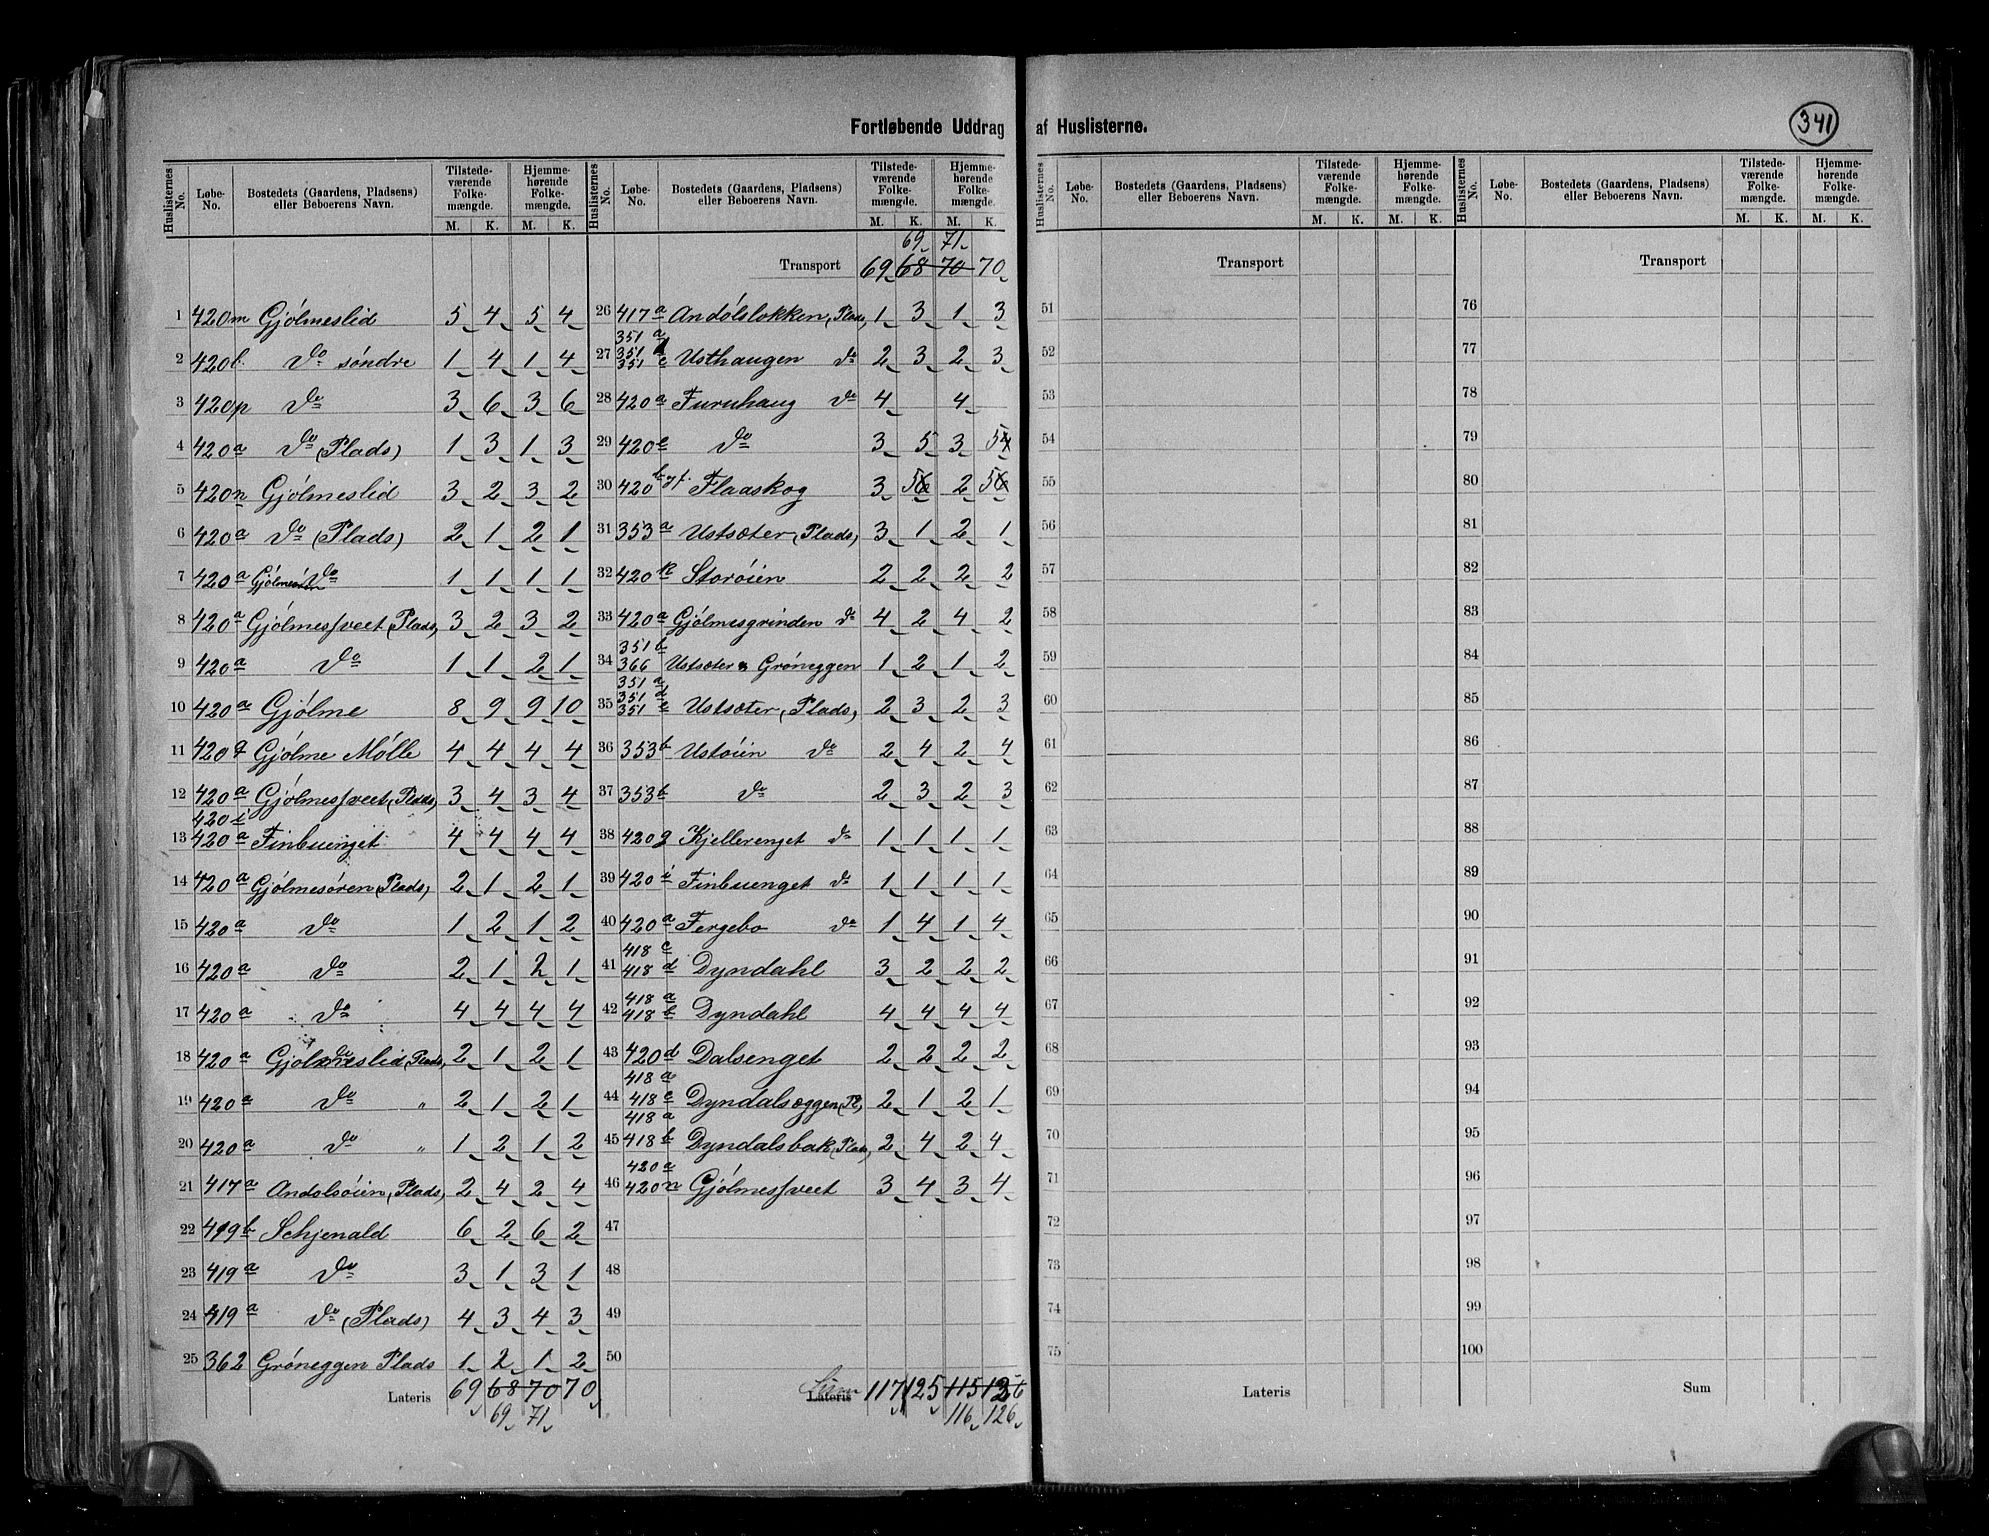 Fortløbende Uddrag af Huslisterne.
341
Huslisternes No. | Løbe-No. | Bostedets (Gaardens, Pladsens) eller Beboerens Navn. | Tilstedeværende Folkemængde. M. K. | Hjemmehørende Folkemængde. M. K.
1 420m Gjølmeslid 5 4 5 4
2 420l. do søndre 1 4 1 4
3 420p do 3 6 3 6
4 420a do (Plads) 1 3 1 3
5 420n Gjølmeslid 3 2 3 2
6 420a do (Plads) 2 1 2 1
7 420a do 1 1 1 1
8 420a Gjølmesveet (Plads) 3 2 3 2
9 420a do 1 1 2 1
10 420a Gjølme 8 9 9 10
11 420q Gjølme Mølle 4 4 4 4
12 420a Gjølmesveet (Plads) 3 4 3 4
13 420i 420a Finbuenget 4 4 4 4
14 420a Gjølmesøren (Plads) 2 1 2 1
15 420a do 1 2 1 2
16 420a do 2 1 2 1
17 420a do 4 4 4 4
18 420a Gjølmeslid (Plads) 2 1 2 1
19 420a do " 2 1 2 1
20 420a do " 1 2 1 2
21 417a Andolsøien (Plads) 2 4 2 4
22 419b Schjenald 6 2 6 2
23 419a do 3 1 3 1
24 419a do (Plads) 4 3 4 3
25 362 Grøneggen Plads 1 2 1 2
Lateris 69 68 70 70
69 71
Huslisternes No. | Løbe-No. | Bostedets (Gaardens, Pladsens) eller Beboerens Navn. | Tilstedeværende Folkemængde. M. K. | Hjemmehørende Folkemængde. M. K.
69 71
Transport 69 68 70 70
26 417a Andølslokken (Plads) 1 3 1 3
27 351a 351d 351e Usthaugen do 2 3 2 3
28 420a Furuhaug do 4 4
29 420e do 3 5 3 5
30 420b og f. Flaaskog 3 5 2 5
31 353a Ustsæter (Plads) 3 1 2 1
32 420k Storøien 2 2 2 2
33 420a Gjølmesgrinden do 4 2 4 2
34 351b 366 Ustsæter & Grøneggen 1 2 1 2
35 351a 351d 351e Ustsæter (Plads) 2 3 2 3
36 353b Ustøien do 2 4 2 4
37 353b do 2 3 2 3
38 420g Kjellerenget do 1 1 1 1
39 420i Finbuenget do 1 1 1 1
40 420a Fergebo do 1 4 1 4
41 418c 418d Dyndahl 3 2 2 2
42 418a 418b Dyndahl 4 4 4 4
43 420d Dalsenget 2 2 2 2
44 418a 418e Dyndalsæggen (Pl) 2 1 2 1
45 418a 418b Dyndalsbak (Plads) 2 4 2 4
46 420a 420n Gjølmesveet 3 4 3 4
47
48
49
50
Lateris Sum 117 125 115
116 126
Huslisternes No. | Løbe-No. | Bostedets (Gaardens, Pladsens) eller Beboerens Navn. | Tilstedeværende Folkemængde. M. K. | Hjemmehørende Folkemængde. M. K.
Transport
51
52
53
54
55
56
57
58
59
60
61
62
63
64
65
66
67
68
69
70
71
72
73
74
75
Lateris
Huslisternes No. | Løbe-No. | Bostedets (Gaardens, Pladsens) eller Beboerens Navn. | Tilstedeværende Folkemængde. M. K. | Hjemmehørende Folkemængde. M. K.
Transport
76
77
78
79
80
81
82
83
84
85
86
87
88
89
90
91
92
93
94
95
96
97
98
99
100
Sum